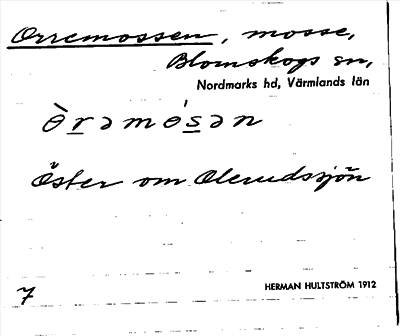 Orremossen, mosse,
Blomskogs sn,
Nordmarks hd, Värmlands län
ò̀r̲əmós̲ən
Öster om Olerudsjön
7
HERMAN HULTSTRÖM 1912